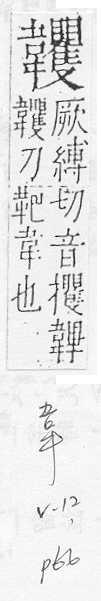 厥縛切音攫
韄刀靶韋也
韋
V-12,
p66